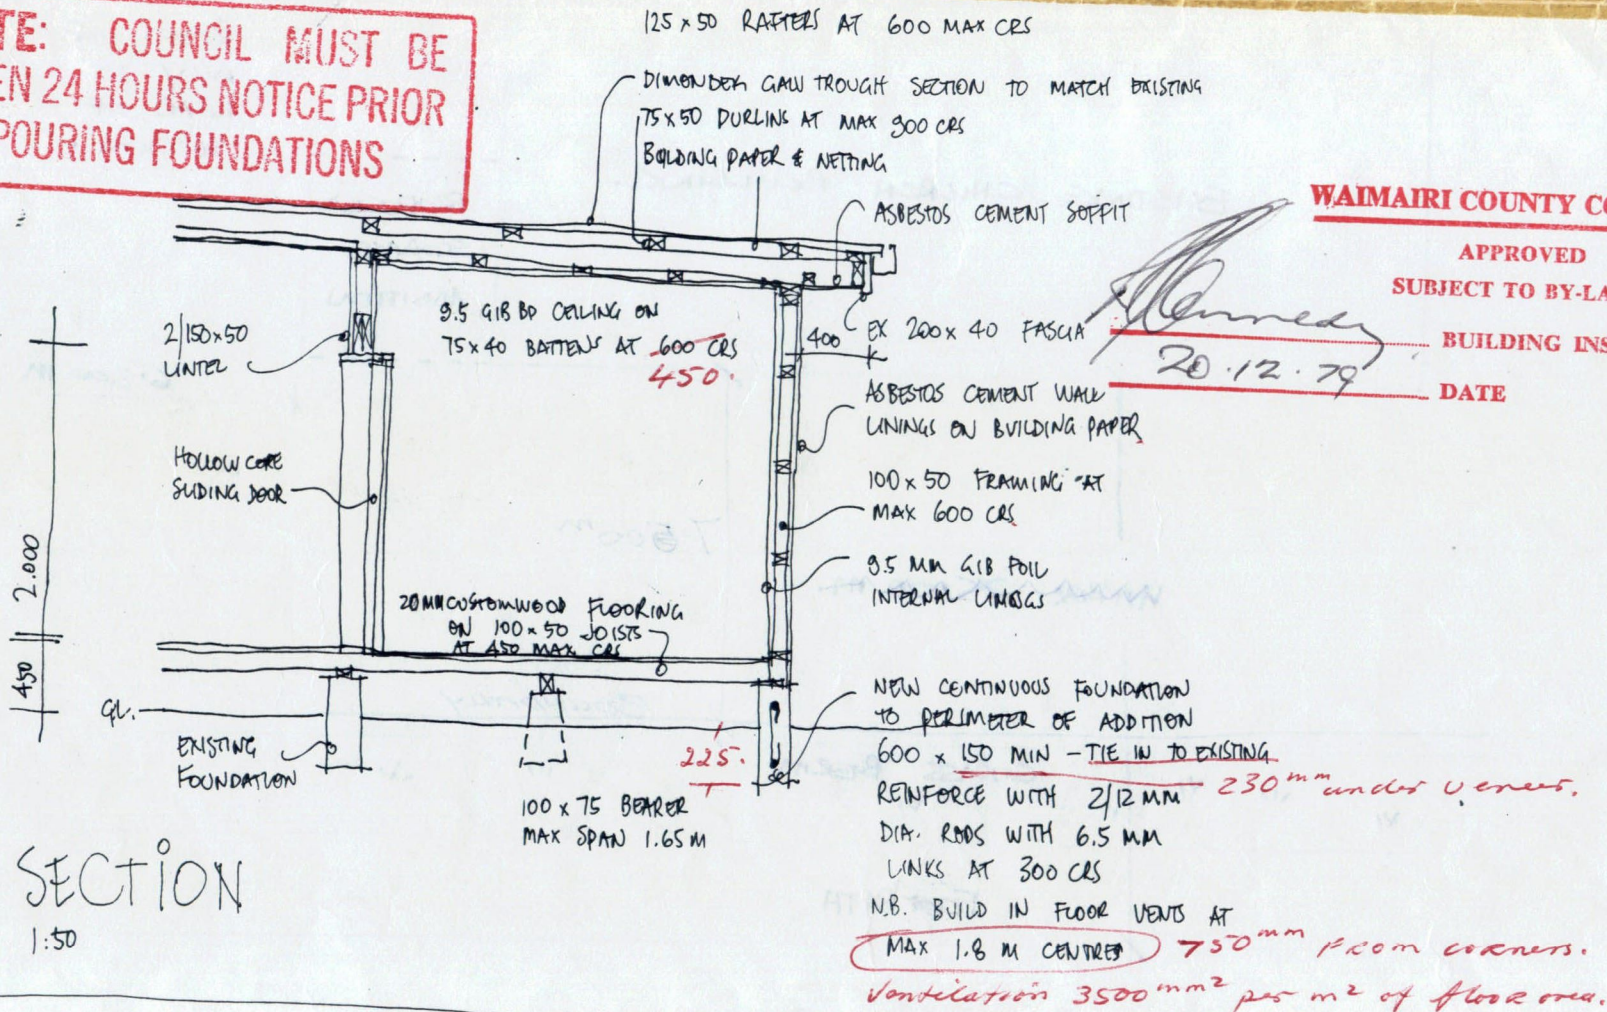 TE: COUNCIL MUST BE
EN 24 HOURS NOTICE PRIOR
POURING FOUNDATIONS
125 x 50 RAFTERS AT 600 MAX CRS
DIMONDEK GALV TROUGH SECTION TO MATCH EXISTING
75 x 50 PURLINS AT MAX 900 CRS
BUILDING PAPER & NETTING
ASBESTOS CEMENT SOFFIT
WAIMAIRI COUNTY CO
APPROVED
SUBJECT TO BY-LA
BUILDING INS
20.12.79
DATE
2/150x50
LINTEL
9.5 GIB BD CEILING ON
75 x 40 BATTENS AT 600 CRS
450.
400
EX 200 x 40 FASCIA
ASBESTOS CEMENT WALL
LININGS ON BUILDING PAPER
HOLLOW CORE
SLIDING DOOR
100 x 50 FRAMING AT
MAX 600 CRS
9.5 MM GIB FOIL
INTERNAL LININGS
2.000
450
20MM CUSTOMWOOD FLOORING
ON 100 x 50 JOISTS
AT 450 MAX CRS
GL.
EXISTING
FOUNDATION
225.
100 x 75 BEARER
MAX SPAN 1.65 M
NEW CONTINUOUS FOUNDATION
TO PERIMETER OF ADDITION
600 x 150 MIN - TIE IN TO EXISTING
230mm under veneer.
REINFORCE WITH 2/12 MM
DIA. RODS WITH 6.5 MM
LINKS AT 300 CRS
N.B. BUILD IN FLOOR VENTS AT
MAX 1.8 M CENTRES 750mm from corners.
Ventilation 3500mm² per m² of floor area.
SECTION
1:50